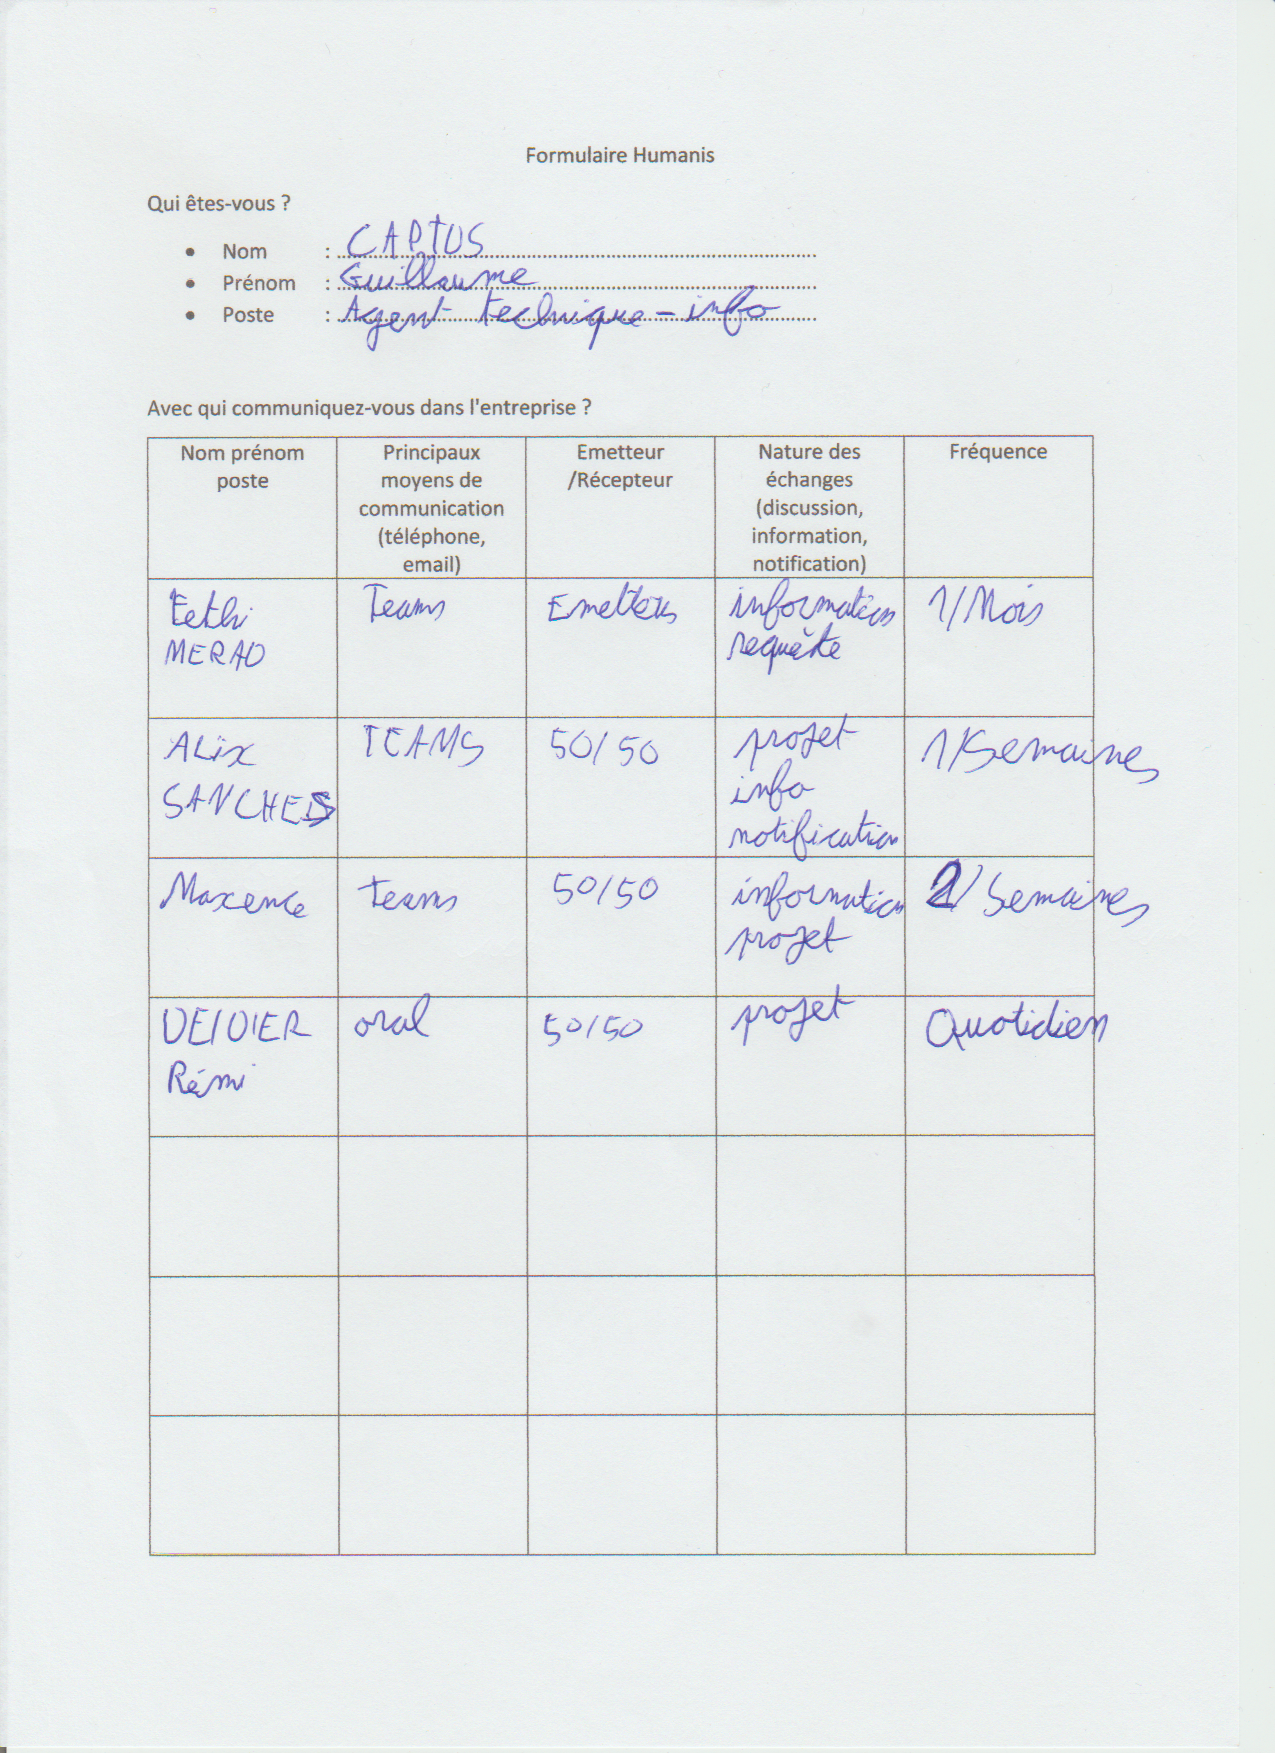 Formulaire Humanis
Qui êtes-vous ?
• Nom : CAPTUS
• Prénom : Guillaume
• Poste : Agent technique - info
Avec qui communiquez-vous dans l'entreprise ?
Nom prénom
poste
Principaux
moyens de
communication
(téléphone,
email)
Emetteur
/Récepteur
Nature des
échanges
(discussion,
information,
notification)
Fréquence
Fethi
MERAD
Teams
Emetteur
information
requête
1/Mois
ALix
SANCHES
TEAMS
50/50
projet
info
notification
1/Semaines
Maxence
teams
50/50
information
projet
2/Semaines
DEIDIER
Rémi
oral
50/50
projet
Quotidien